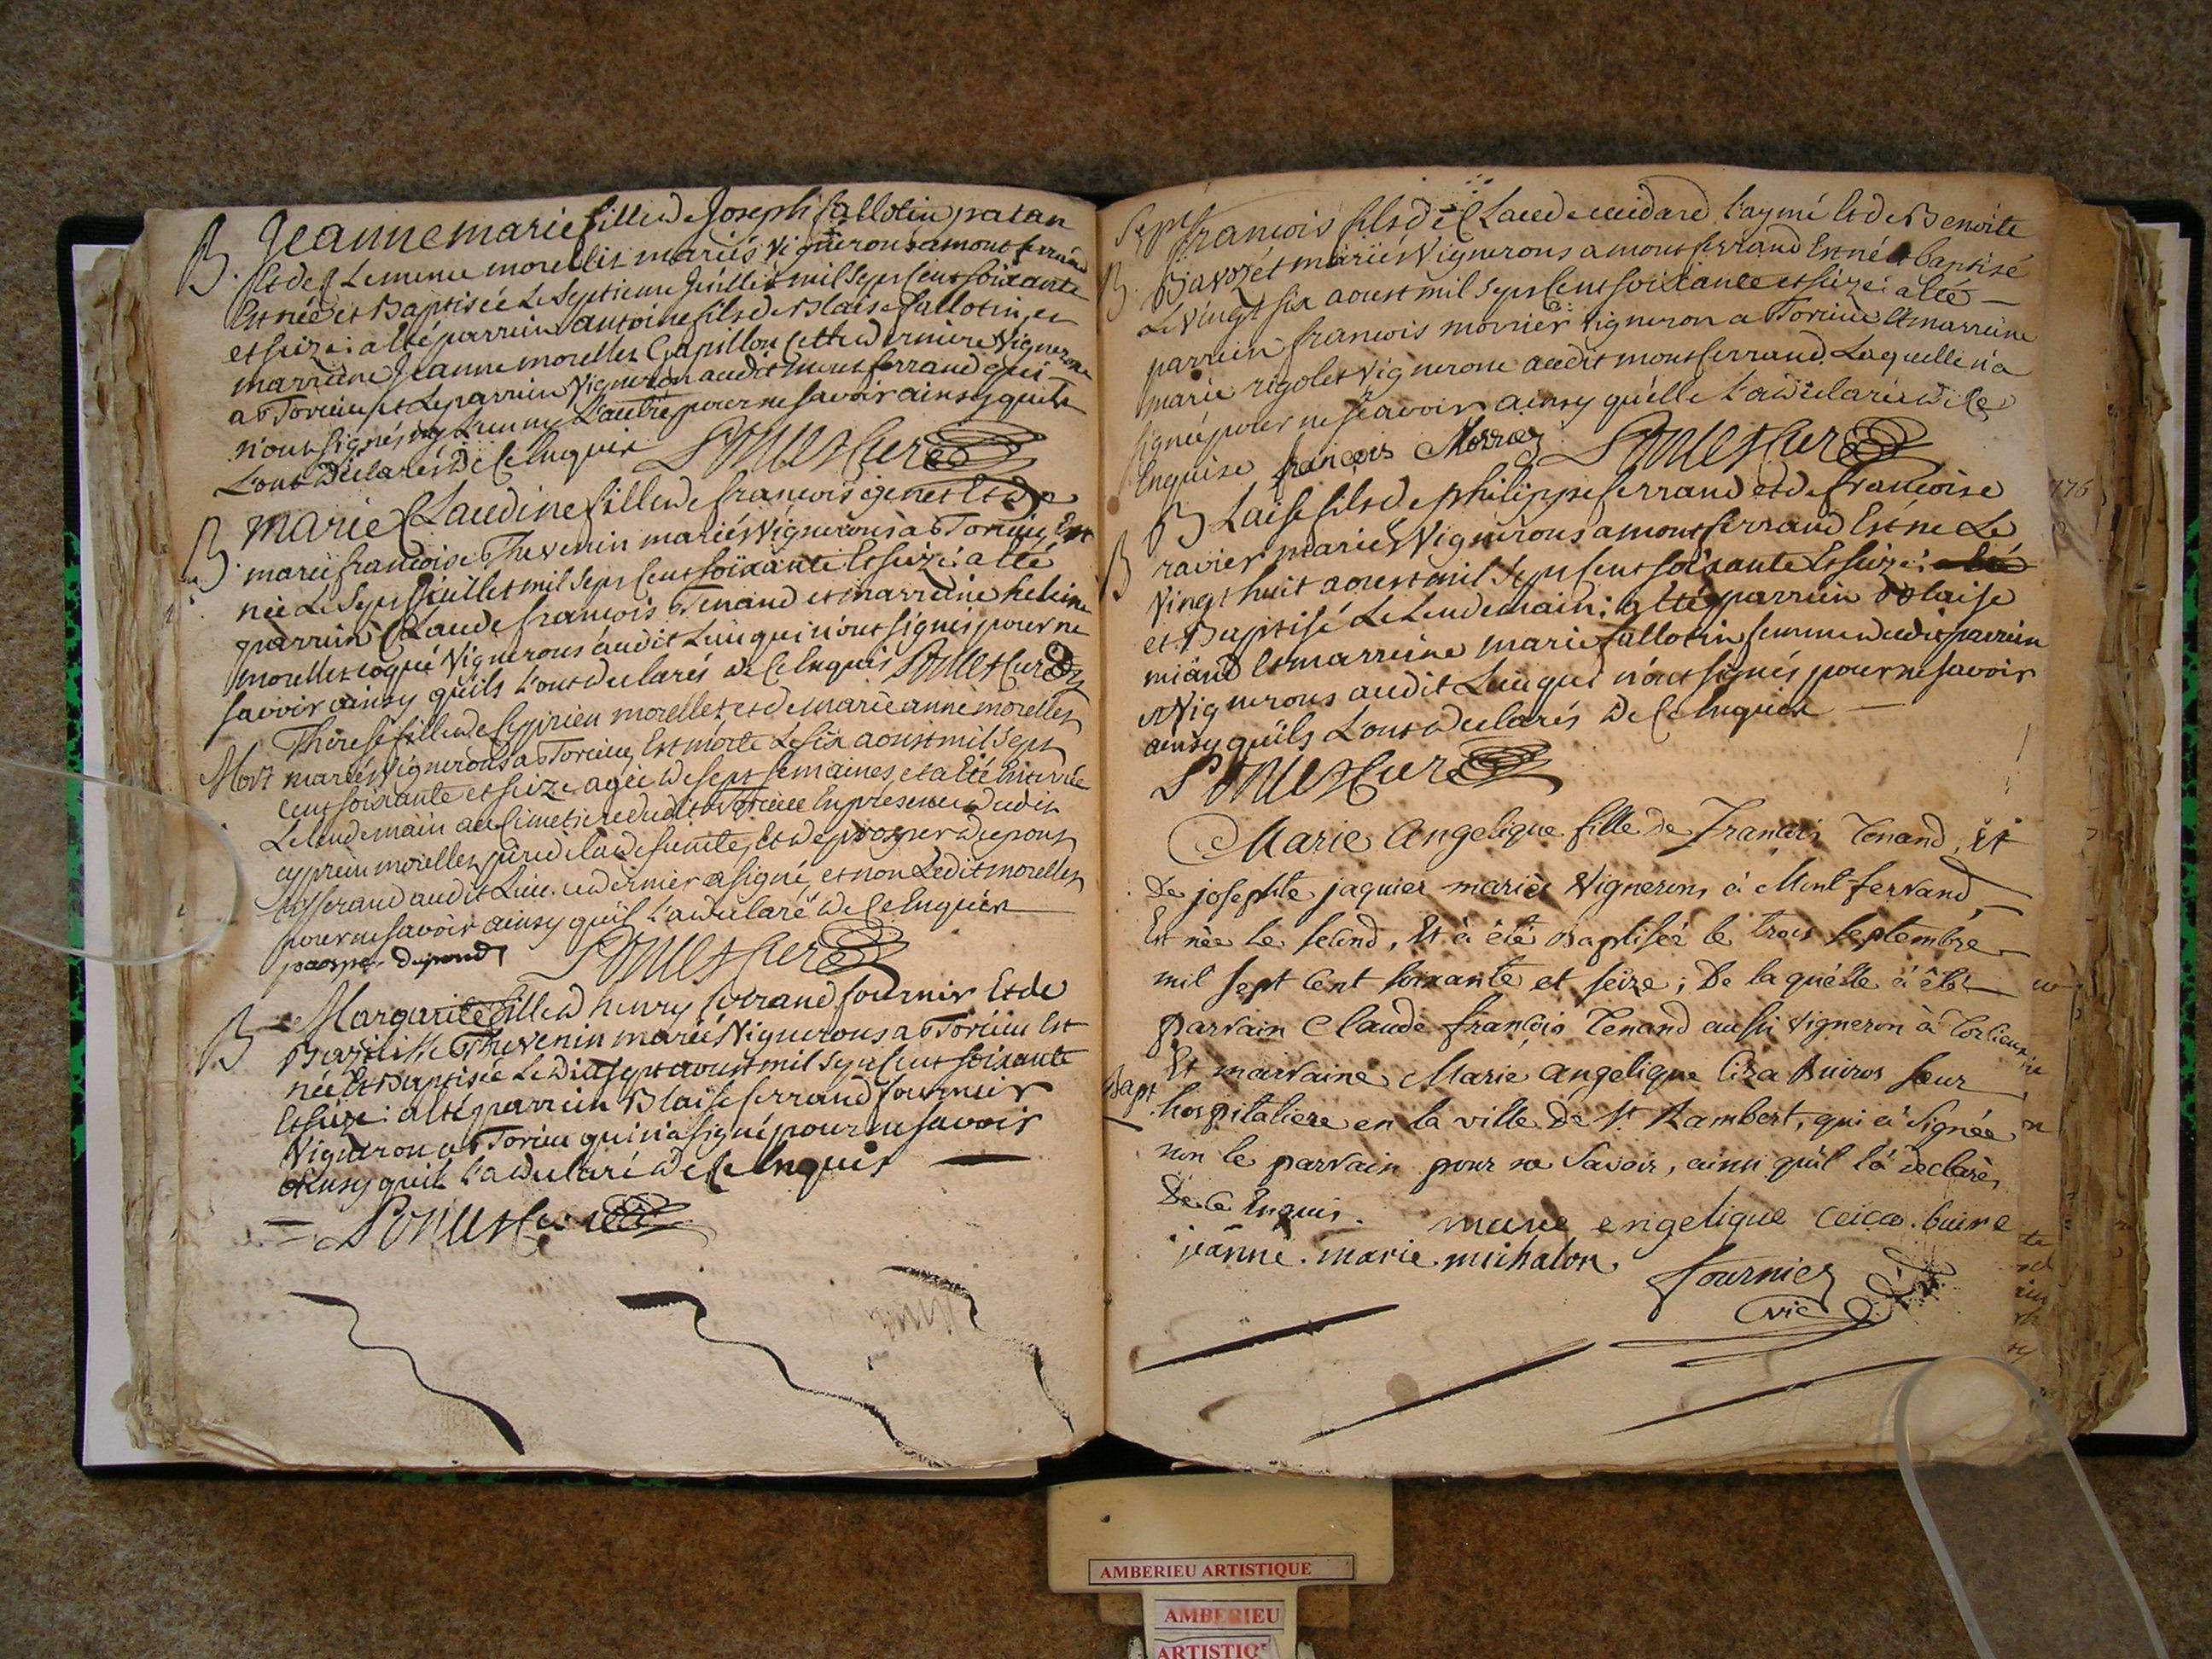 B. Jeanne marie fille de Joseph fallotin patan
Et de Clemence morellet mariés Vignerons a montferrand
Est née et Baptisée Le septieme Juillet mil sept Cent soixante
et seize: a Eté parrein antoine fils de Blaise fallotin, et
marreine Jeanne morellet Capillon cette derniere Vigneronne
a Torcieu, et Le parrein Vigneron audit montferrand qui
n'ont signés ny L'un ny L'autre pour ne savoir ainsy quils
L'ont déclarés de Ce Enquis Curé
B. marie Claudine fille de francois genet Et de
marie francoise Thevenin mariés Vignerons a Torcieu, Est
née Le Sept Juillet mil Sept Cent soixante Et seize: a Eté
parrein Claude francois Tenand et marreine helene
morellet coqué Vignerons audit Lieu qui n'ont signés pour ne
savoir ainsy quils L'ont declarés de Ce Enquis Curé
Therese fille de Cyprien morellet, et de marie anne morellet
Mort mariés Vignerons a Torcieu, Est morte Le six aoust mil Sept
Cent soixante et seize agée de sept semaines, et a Eté Enterrée
Le lendemain au Cimetiere dudit Torcieu En presence dudit
cyprien morellet pere de la defunte, Et de prosper dupont
tisserand audit Lieu. ce dernier a signé, et non Ledit morellet
pour ne savoir ainsy quil L'a declaré de Ce Enquis
prosper dupond Curé
B Margarite fille d'henry ferrand fournir Et de
Thevenin mariés Vignerons a Torcieu Est
née Et Baptisée Le dix sept aoust mil Sept Cent soixante
Et seize: a Eté parrein Blaise ferrand fournier
Vigneron a Torcieu qui n'a signé pour ne savoir
ainsy quil L'a declaré de Ce Enquis
Curé
Sept francois fils de Claude midard L'aymé Et de Benoite
B. Bavozet mariés Vignerons a montferrand Est né et baptisé
Le Vingt six aoust mil Sept Cent soixante et seize: a Eté
parrein francois morrier Vigneron a Torcieu Et marreine
marie rigolet Vigneronne audit montferrand. Laquelle n'a
signée pour ne sçavoir ainsy quélle L'a declarée de Ce
Enquise francois Morrier Curé
B Blaise fils de philippe ferrand et de francoise
ravier mariés Vignerons a montferrand Est né Le
Vingt huit aoust mil Sept Cent soixante Et seize:
et Baptisé Le Lendemain: a Eté parrein Blaise
miand Et marreine marie fallotin femme dudit parrein
Vignerons audit Lieu qui n'ont signés pour ne savoir
ainsy quïls L'ont declarés de Ce Enquis
Curé
776
Marie Angelique fille de Francois Tenand, Et
De josephte jaquier mariés Vignerons à Mont ferrand,
Est née le second, Et à été Baptisée le trois septembre
mil sept Cent soixante et seize; De laquélle à été
parrain Claude francois Tenand aussi Vigneron à Torcieu
Bapt. Et marraine Marie Angelique soeur
hospitaliere en la ville De St. Rambert, qui à signée
non le parrain pour ne savoir, ainsi quil l'à declaré,
De Ce Enquis. marie engelique
jeanne. marie. michalon
fournier
vic
AMBERIEU ARTISTIQUE
AMBERIEU
ARTISTIQ